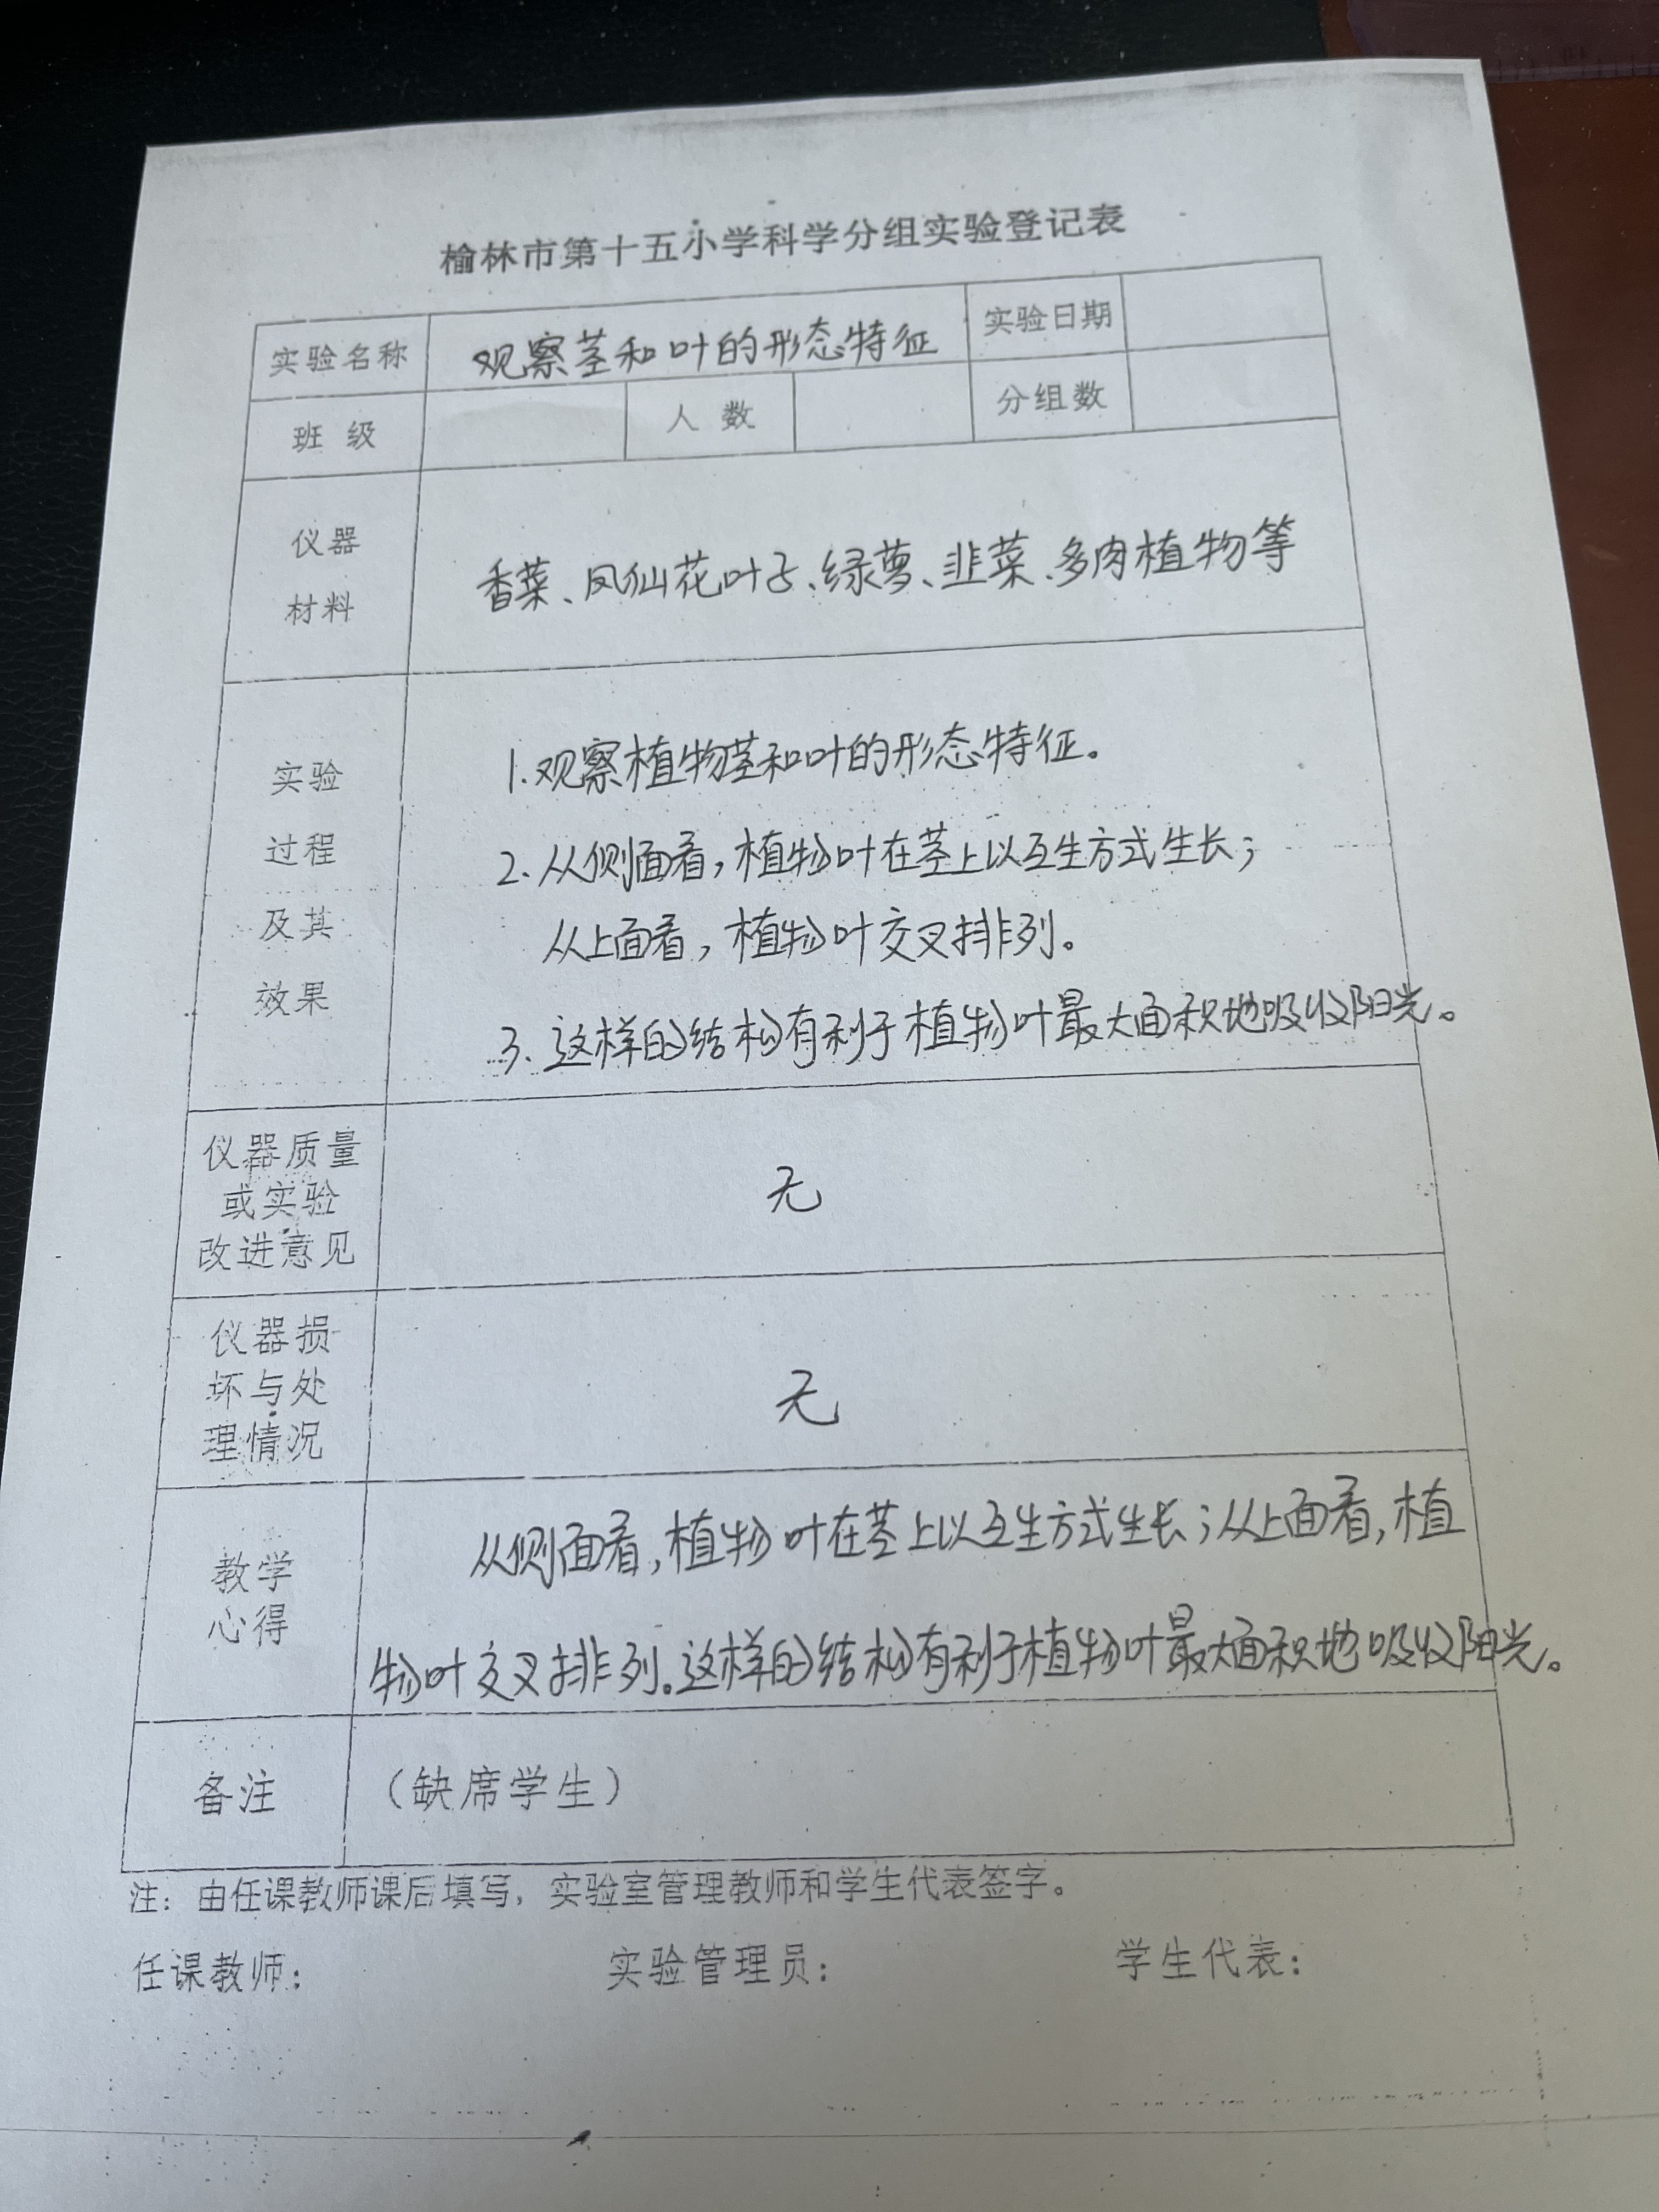 榆林市第十五小学科学分组实验登记表
实验名称 观察茎和叶的形态特征 实验日期
班 级 人 数 分组数
仪器
材料
香菜、凤仙花叶子、绿萝、韭菜、多肉植物等
实验
过程
及其
效果
1.观察植物茎和叶的形态特征。
2.从侧面看,植物叶在茎上以互生方式生长;
从上面看,植物叶交叉排列。
3.这样的结构有利于植物叶最大面积地吸收阳光。
仪器质量
或实验
改进意见
无
仪器损
坏与处
理情况
无
教学
心得
从侧面看,植物叶在茎上以互生方式生长;从上面看,植
物叶交叉排列。这样的结构有利于植物叶最大面积地吸收阳光。
备注 (缺席学生)
注:由任课教师课后填写,实验室管理教师和学生代表签字。
任课教师: 实验管理员: 学生代表: